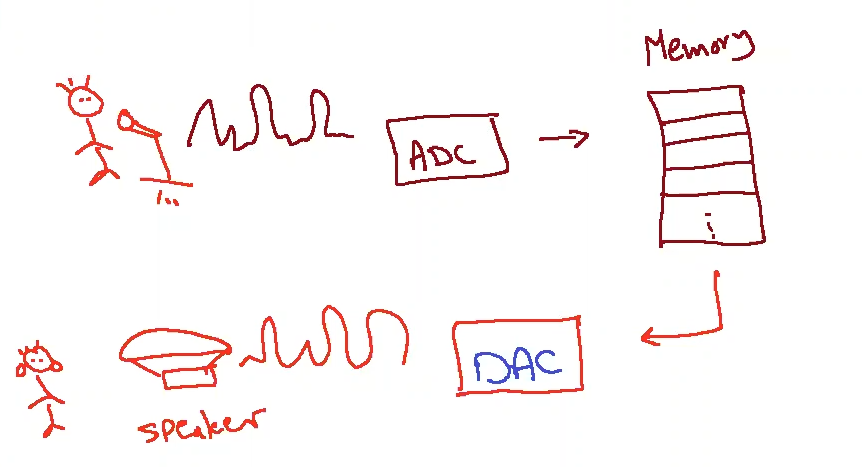 Memory
ADC
DAC
speaker